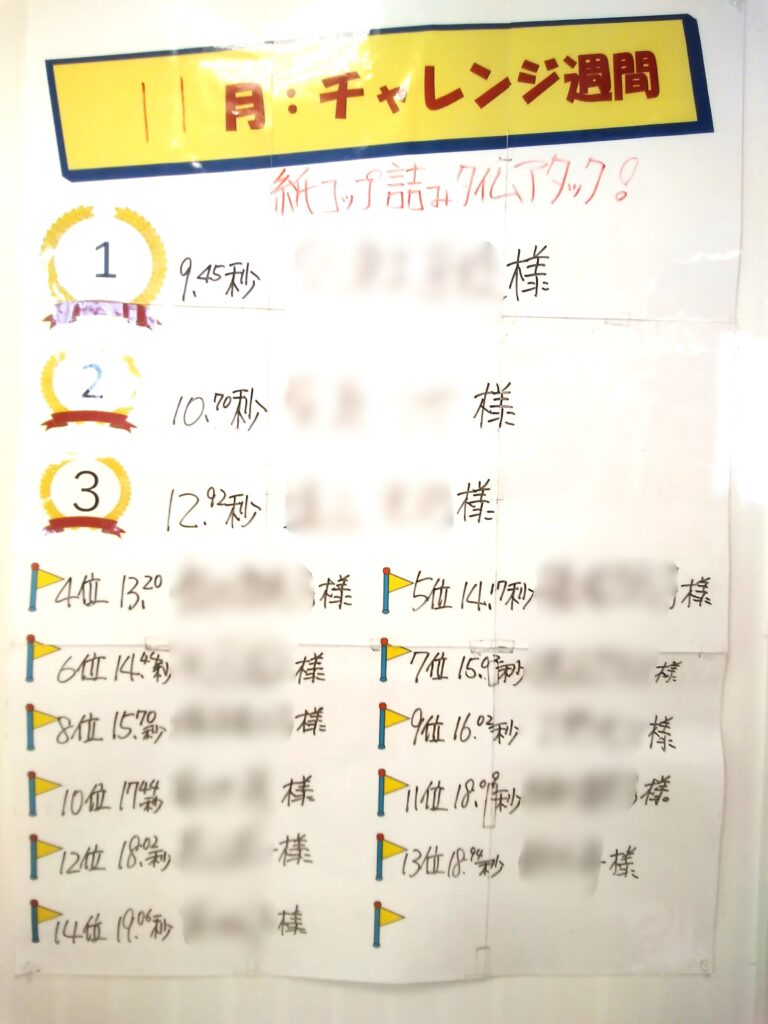 11月：チャレンジ週間
紙コップ詰みタイムアタック！
1 9.45秒 様
2 10.70秒 様
3 12.92秒 様
4位 13.20 様 5位 14.17秒 様
6位 14.44秒 様 7位 15.秒 様
8位 15.70秒 様 9位 16.02秒 様
10位 17.44秒 様 11位 18.秒 様
12位 18.02秒 様 13位 18.94秒 様
14位 19.06秒 様